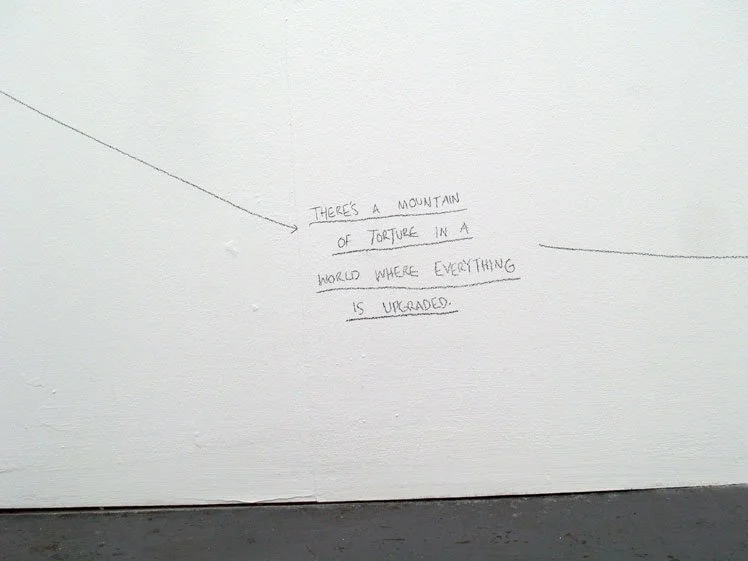 THERE'S A MOUNTAIN
OF TORTURE IN A
WORLD WHERE EVERYTHING
IS UPGRADED.